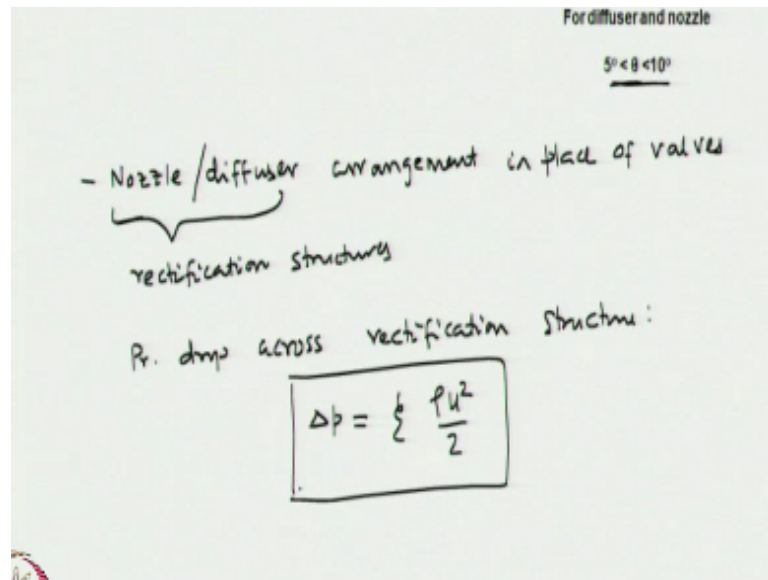 For diffuser and nozzle
5⁰ < θ <10⁰
- Nozzle/diffuser arrangement in place of valves
rectification structures
Pr. drop across rectification structure:
Δp = ξ ρu²/2